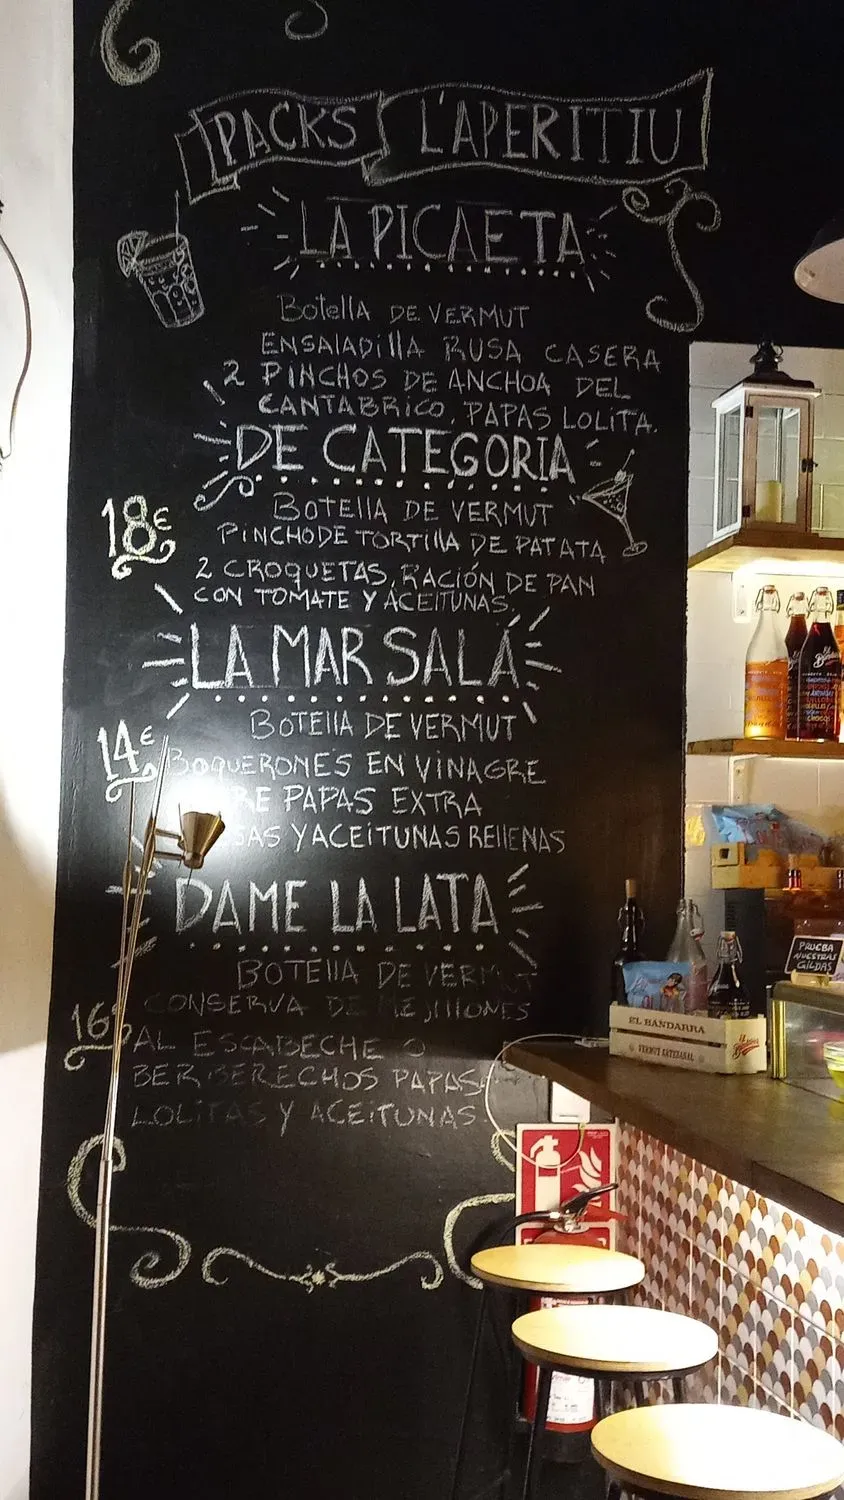 PACKS L'APERITIU
LA PICAETA
BOTELLA DE VERMUT
ENSALADILLA RUSA CASERA
2 PINCHOS DE ANCHOA DEL
CANTABRICO, PAPAS LOLITA.
DE CATEGORIA
18€
BOTELLA DE VERMUT
PINCHO DE TORTILLA DE PATATA
2 CROQUETAS, RACIÓN DE PAN
CON TOMATE Y ACEITUNAS.
LA MAR SALÁ
14€
BOTELLA DE VERMUT
BOQUERONES EN VINAGRE
PAPAS EXTRA
Y ACEITUNAS RELLENAS
DAME LA LATA
BOTELLA DE VERMUT
CONSERVA DE MEJILLONES
16
AL ESCABECHE O
BERBERECHOS PAPAS
LOLITAS Y ACEITUNAS
PRUEBA
NUESTRAS
GILDAS
EL BANDARRA
VERMUT ARTESANAL